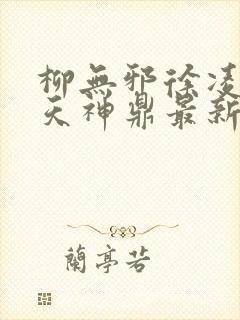 柳無邪徐凌
天神鼎最新
蘭亭若